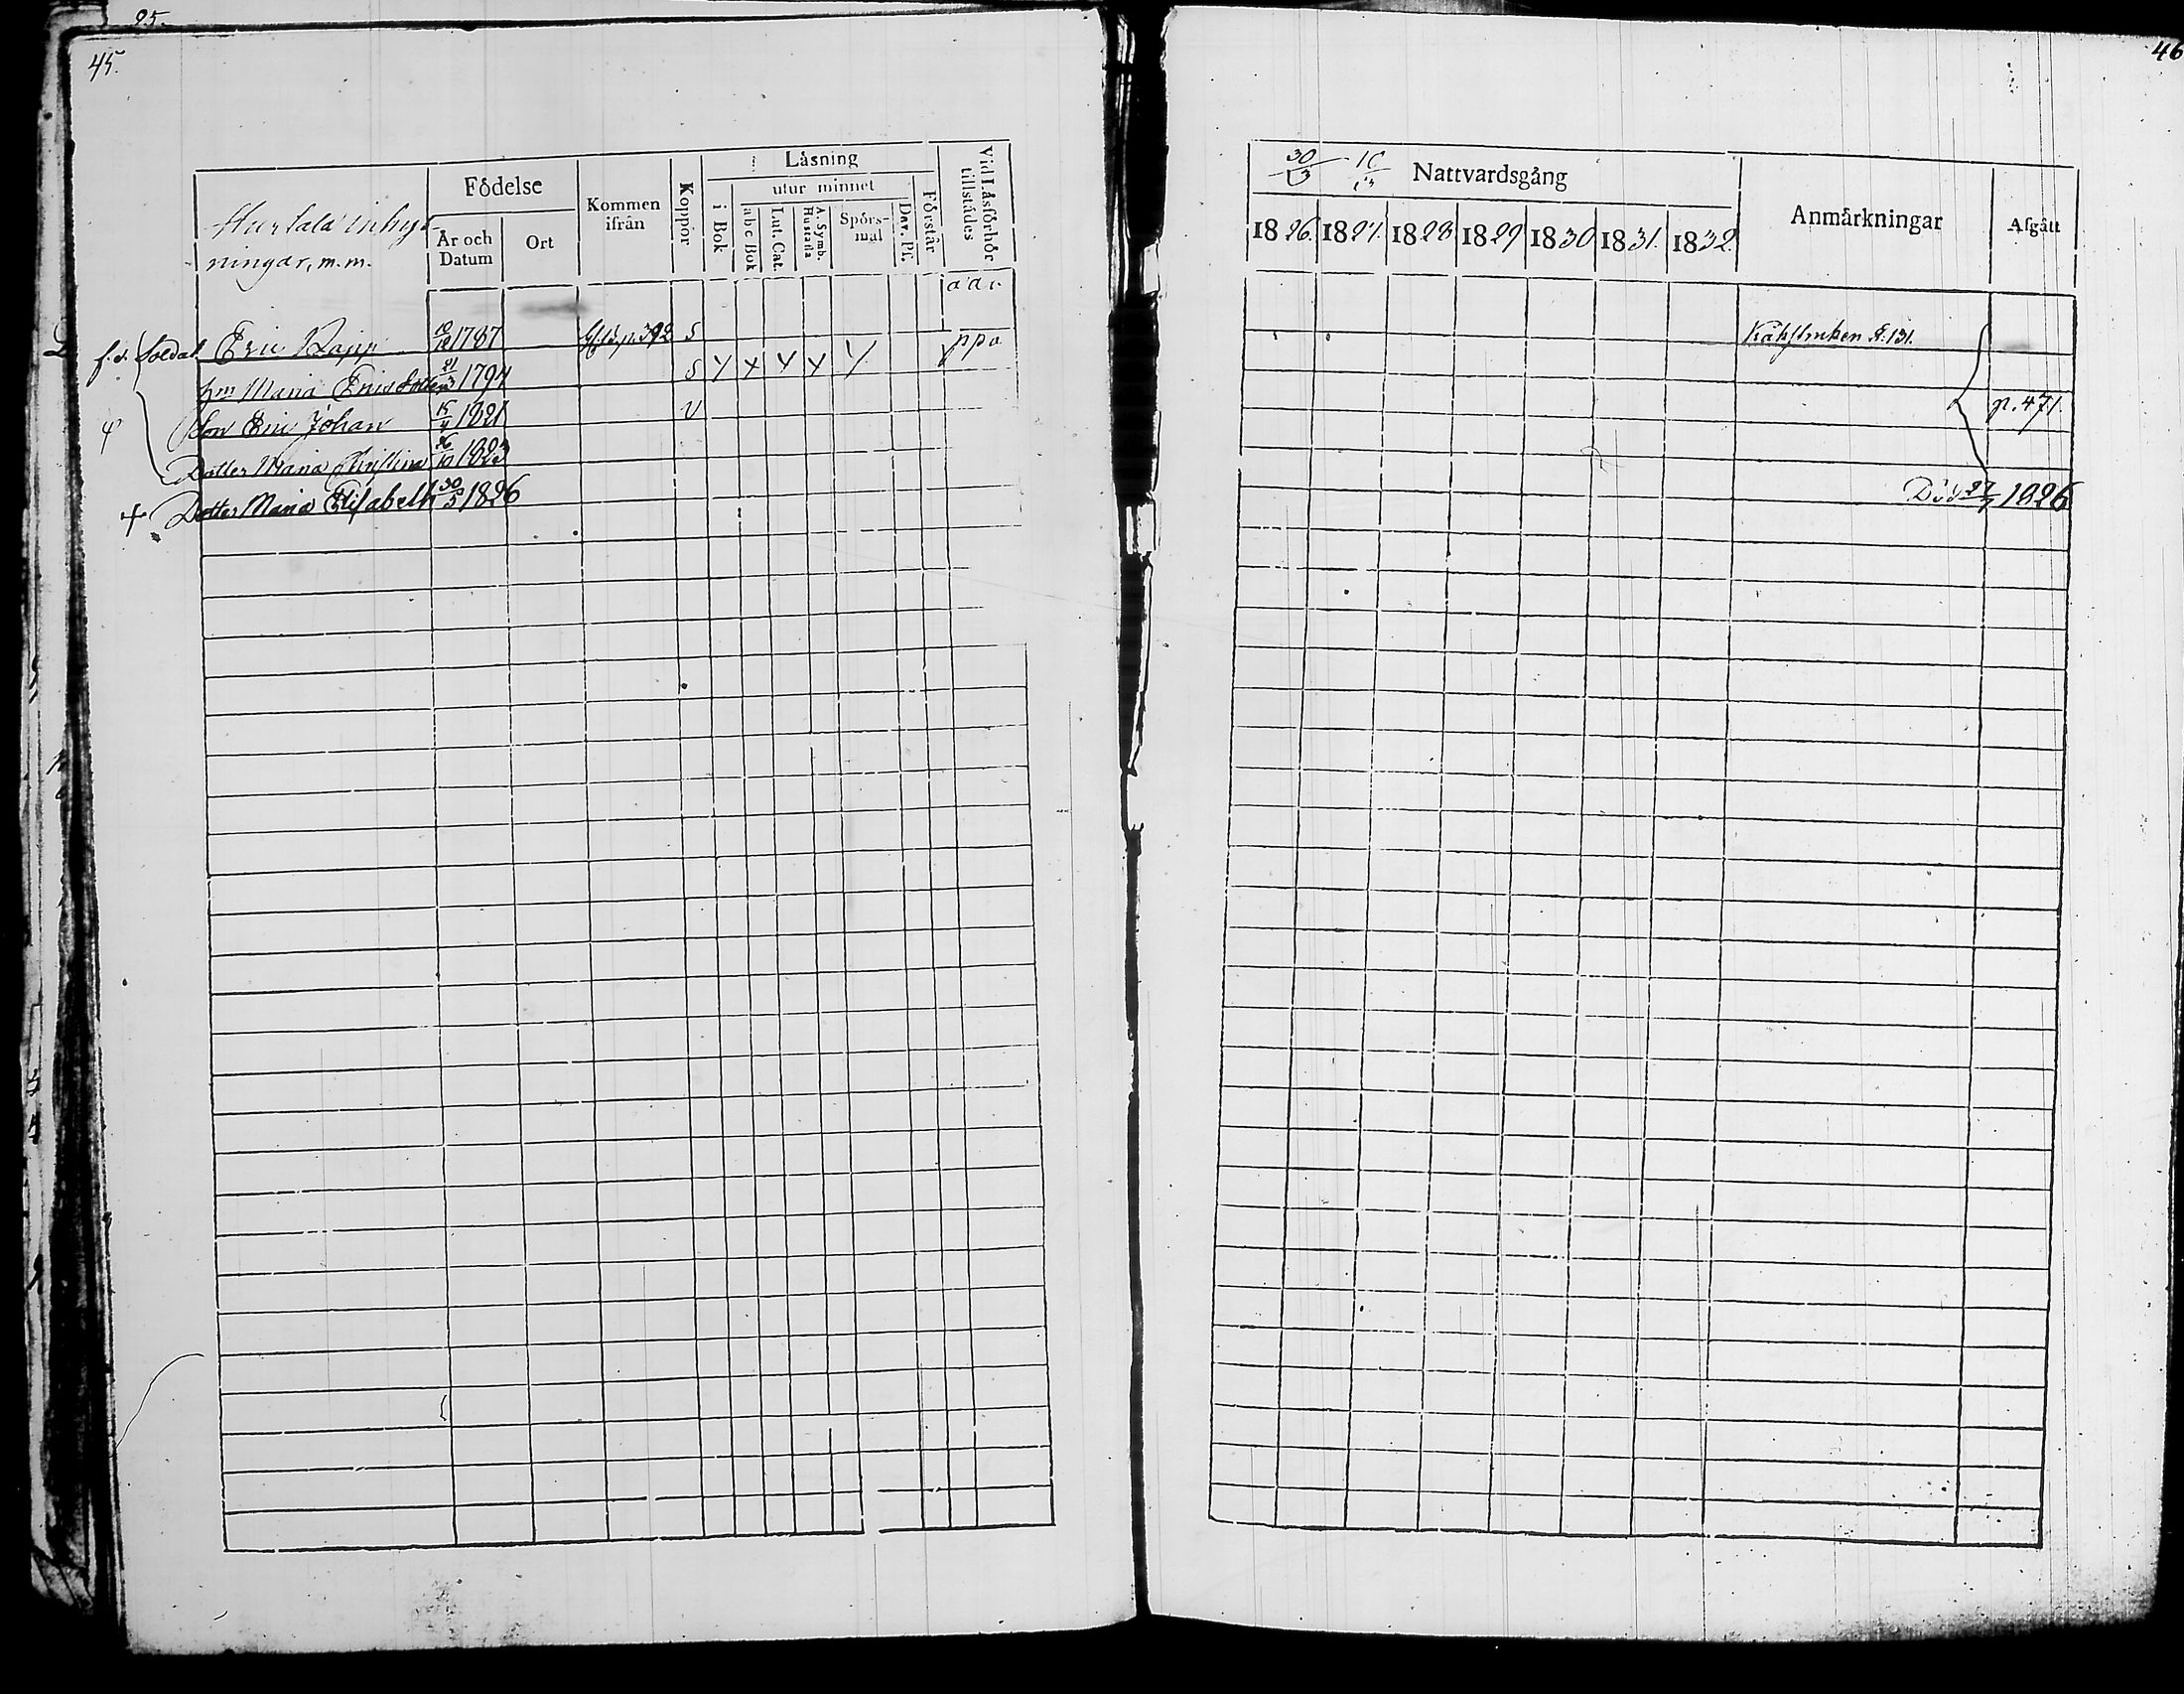 25.
45.
46
inhys-
ningar, m.m.
Födelse
År och
Datum
Ort
Kommen
ifrån
Koppor
Läsning
i Bok
utur minnet
abc Bok
Lut. Cat.
A. Symb.
Hustafla
Spörs-
mål
Dav. Ps.
Förstår
Vid Läsförhör
tillstädes
f.d. Soldat Eric Rapp 1787 p. 392 S
Maria Ericsdotter 1794 S
Son Eric Johan 15/4 1821 V
Dotter Maria Christina 26/10 1823
Dotter Maria Elisabeth 30/5 1826
30/3
Nattvardsgång
1826. 1827. 1828 1829 1830 1831. 1832.
Anmärkningar
Afgått
N. 131.
p. 471.
Död 27/7 1826